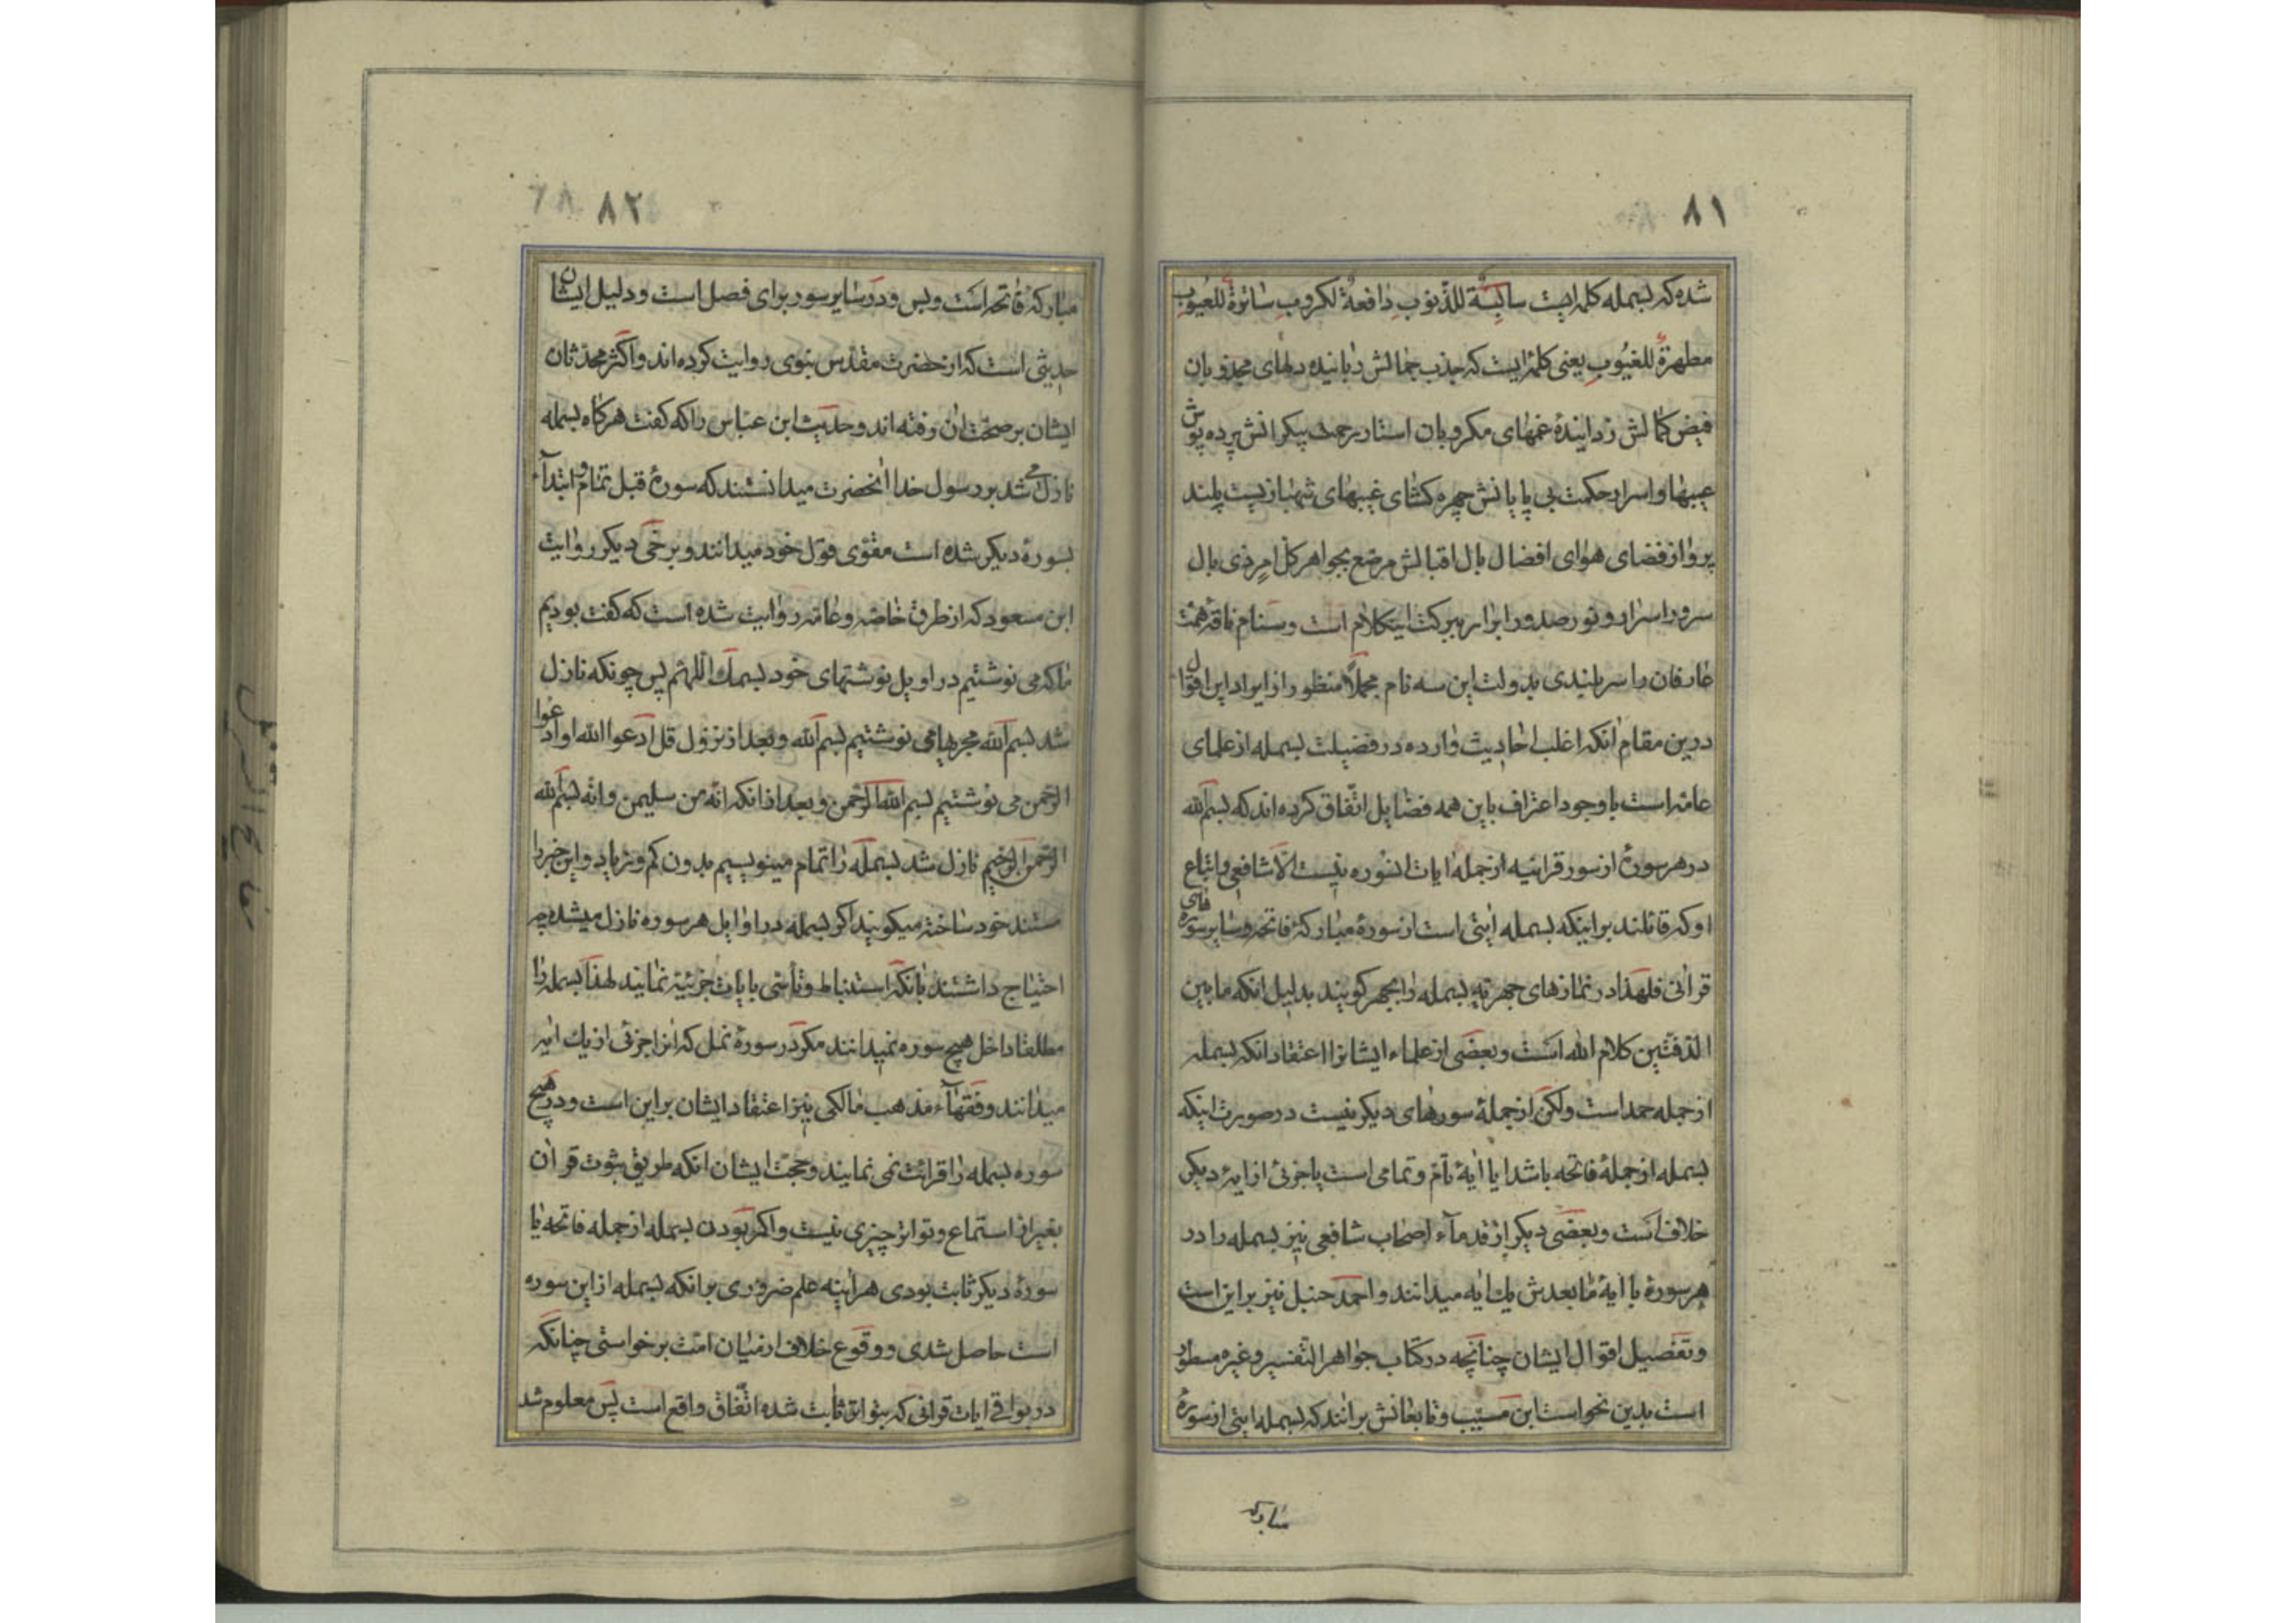 ٨١
شده که بسمله کلمه ایست سالبة للذنوب دافعة لکروب ساترة للعیوب
مطهرة للغیوب یعنی کلمه ایست که جذب جمالش رباینده دلهای مجذوبان
فیض کمالش زدایندهٔ غمهای مکروبان استار رحمت پیکرانش پرده پوش
عیبها و اسرار حکمت بی پایانش چهره کشای غیبها شهباز پست بلند
پرواز فضای هوای افضال بال اقبالش مرصع بجواهر کل امر ذی بال
سرور اسرار و نور صدور ابرار ببرکت اینکلام است و سنام ناقهٔ همت
عارفان را سربلندی بدولت این سه نام مجملاً منظور از ایراد این اقوال
درین مقام آنکه اغلب احادیث وارده در فضیلت بسمله از علمای
عامه است با وجود اعتراف باین همه فضایل اتّفاق کرده اند که بسم الله
در هر سورهٔ از سور قرانیه از جمله ایات انسوره نیست الّا شافعی و اتباع
او که قائلند بر اینکه بسمله ایتی است از سورهٔ مبارکهٔ فاتحه و سایر سوره های
قرانی فلهذا در نمازهای جهریه بسمله را بجهر کویند بدلیل انکه ما بین
الدفتین کلام الله است و بعضی از علماء ایشانرا اعتقاد انکه بسمله
از جمله حمد است ولکن از جملهٔ سورهای دیکر نیست در صورت اینکه
بسمله از جملهٔ فاتحه باشد ایا ایهٔ تام و تمامی است یا جزئی از ایهٔ دیکر
خلافست و بعضی دیکر از قدمآء اصحاب شافعی نیز بسمله را در
هر سورهٔ با ایهٔ ما بعدش یك ایه میدانند و احمد حنبل نیز براین است
و تفصیل اقوال ایشان چنانچه در کتاب جواهر التفسیر و غیره مسطور
است بدین نحو است ابن مسیّب و تابعانش برانند که بسمله ایتی از سورهٔ
مبارکه
٨٢
مبارکهٔ فاتحه است و بس و در سایر سور برای فصل است و دلیل ایشان
حدیثی است که از حضرت مقدس نبوی روایت کرده اند و اکثر محدثان
ایشان بر صحّت ان رفته اند و حدیث ابن عبّاس را که کفت هر کاه بسمله
نازل می شد بر رسول خدا انحضرت میدانستند که سورهٔ قبل تمام و ابتدآء
بسورهٔ دیکر شده است مقوّی قول خود میدانند و برخی دیکر روایت
ابن مسعود که از طرق خاصه و عامه روایت شده است که کفت بودیم
ما که می نوشتیم در اوایل نوشتهای خود بسمك اللهم پس چونکه نازل
شد بسم الله مجریها می نوشتیم بسم الله و بعد از نزول قل ادعوا الله او ادعوا
الرحمن می نوشتیم بسم الله الرحمن و بعد از انکه انه من سلیمن و انه بسم الله
الرحمن الرحیم نازل شد بسمله را تمام مینویسیم بدون کم و زیاد و این خبر را
مستند خود ساخته میکویند اکر بسمله در اوایل هر سوره نازل میشد چه
احتیاج داشتند بانکه استنباط و تأسّی بایات جزئیّه نمایند لهذا بسمله را
مطلقا داخل هیچ سوره نمیدانند مکر در سورهٔ نمل که انرا جزئی از یك ایه
میدانند و فقهآء مذهب مالکی نیز اعتقاد ایشان براین است و در هیچ
سوره بسمله را قرائت نمی نمایند و حجت ایشان انکه طریق ثبوت قران
بغیر از استماع و تواتر چیزی نیست و اکر بودن بسمله از جمله فاتحه یا
سورهٔ دیکر ثابت بودی هراینه علم ضروری برانکه بسمله از این سوره
است حاصل شدی و وقوع خلاف از میان امت برخواستی چنانکه
در بواقی ایات قرانی که بتواتر ثابت شده اتّفاق واقع است پس معلوم شد